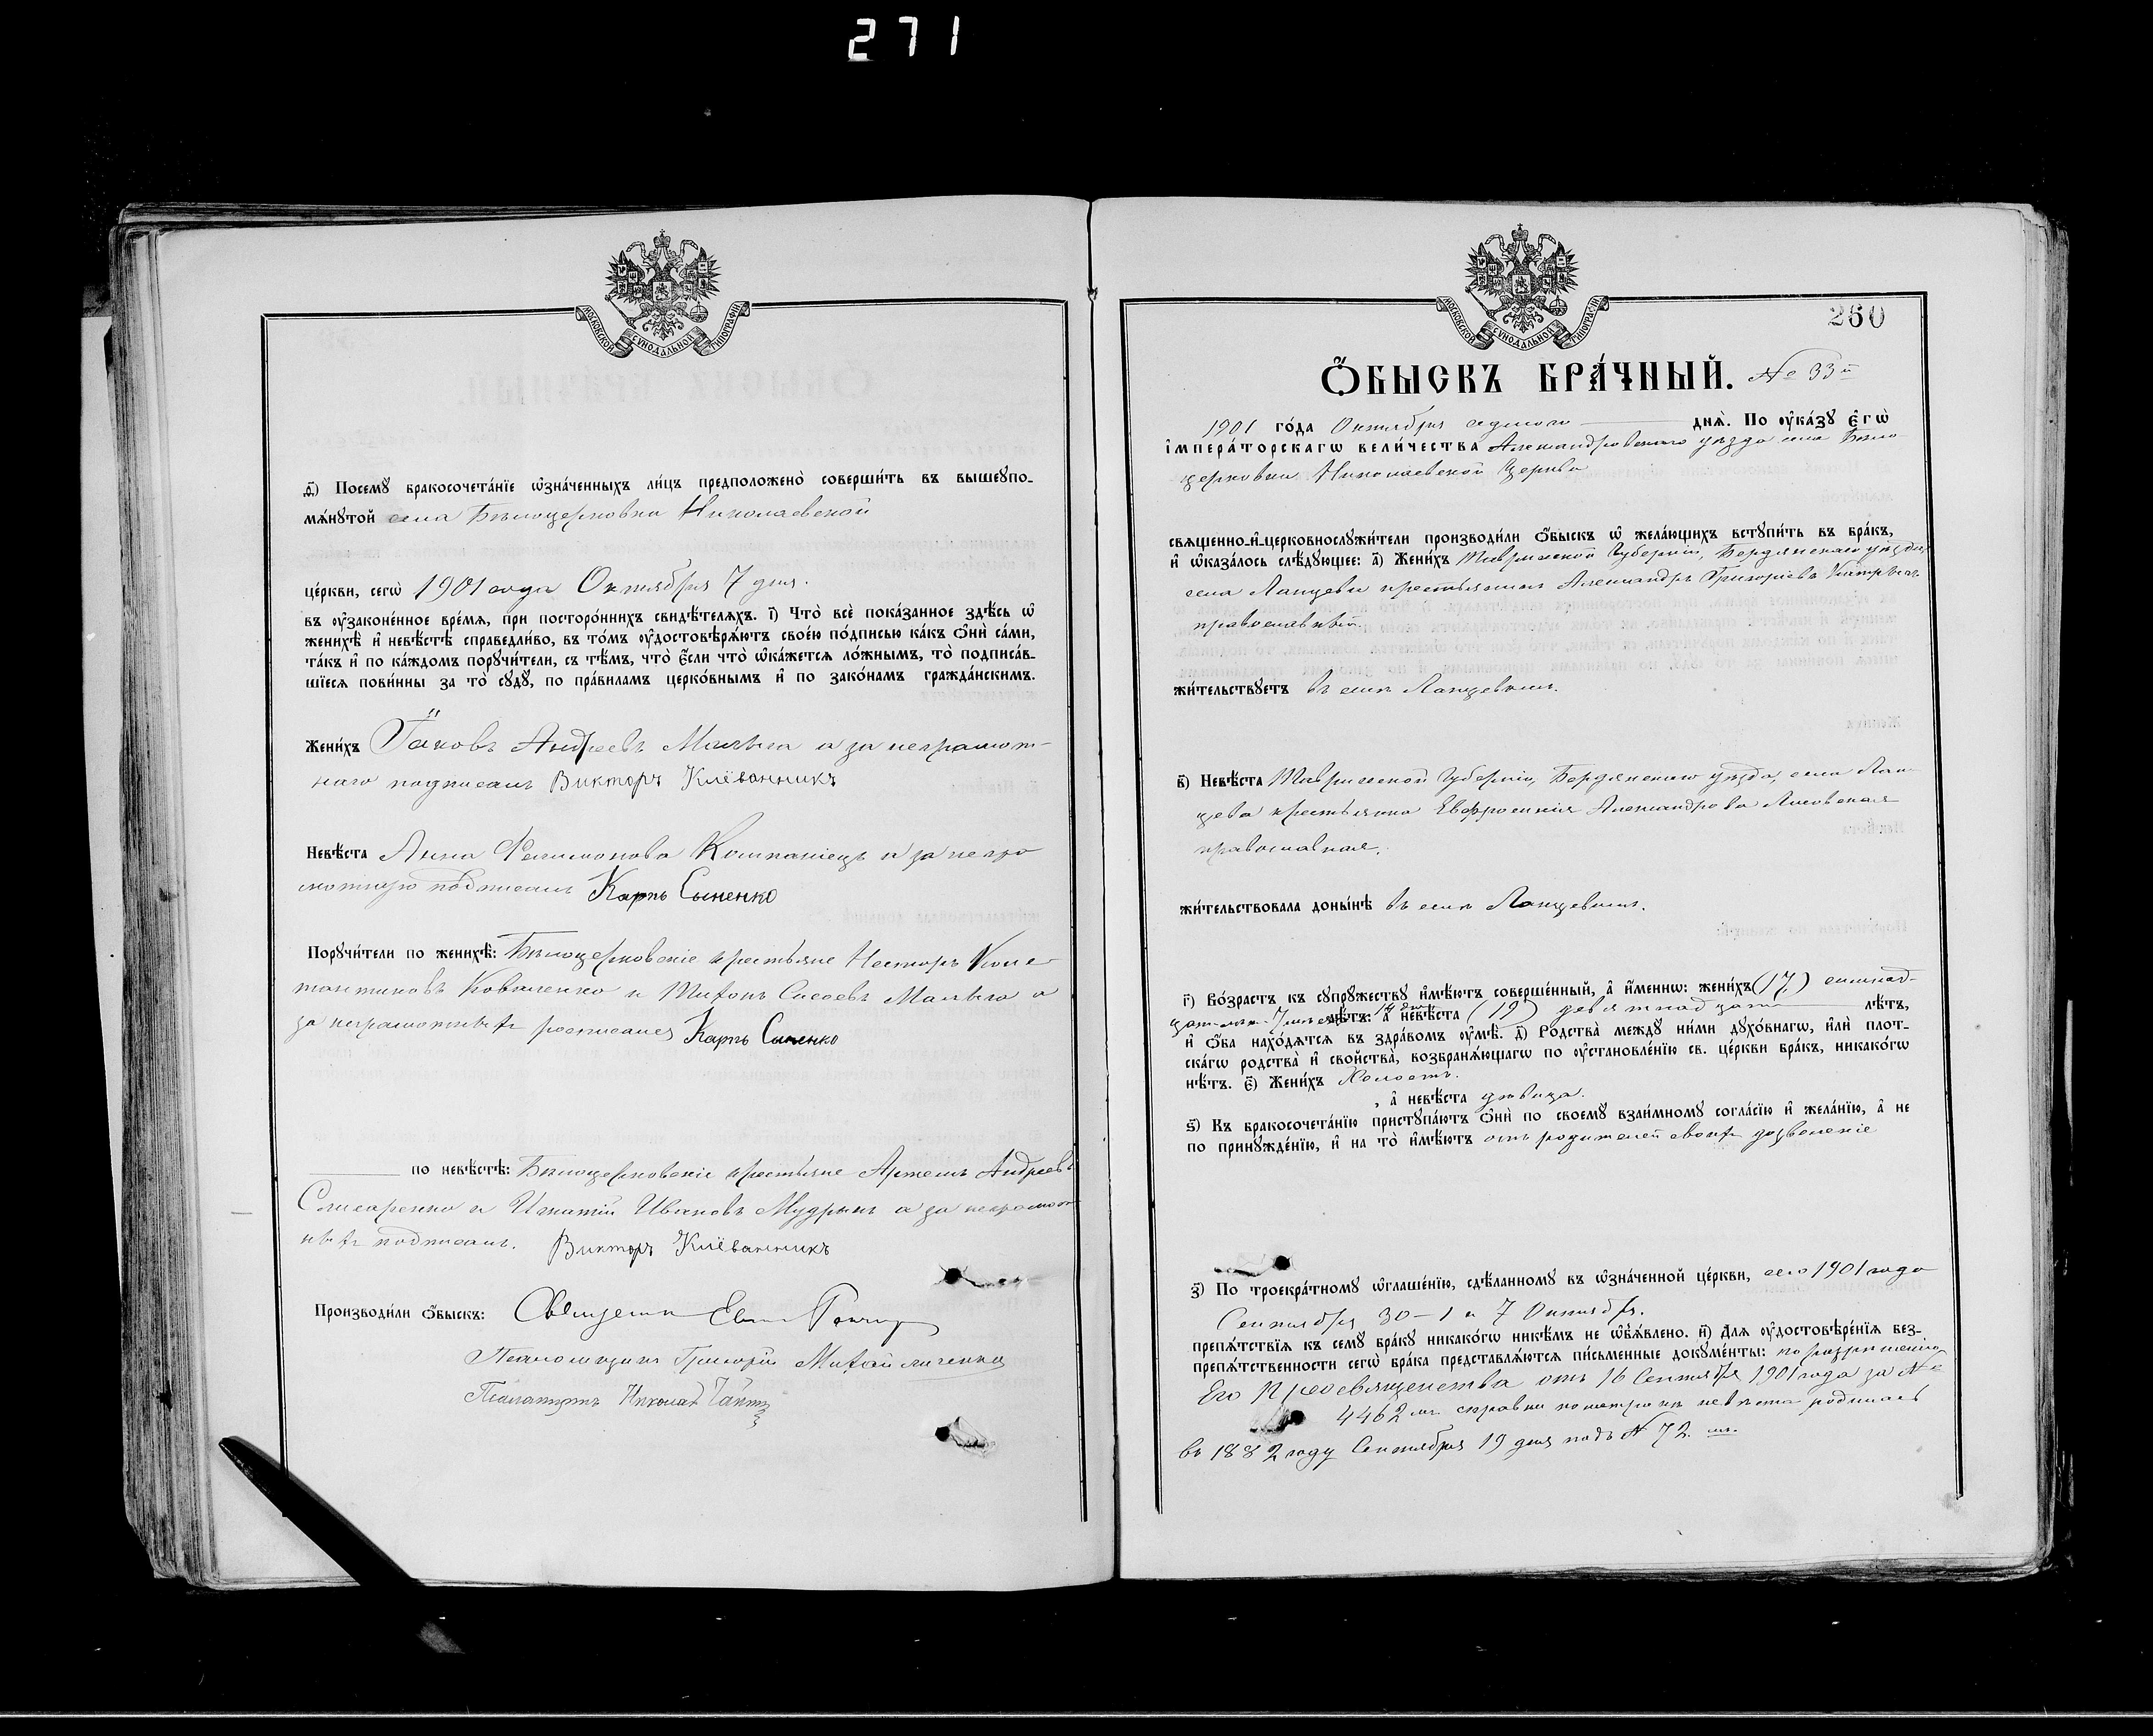 271
МОСКОВСКОЙ СѴНОДАЛЬНОЙ ТИПОГРАФІИ
ѳ҃) Посемꙋ бракосочета́нїе ѡ҆зна́ченныхъ ли́цъ предположено̀ соверши́ть въ вышеꙋпо-
мѧ́нꙋтой села Бѣлоцерковки Николаевской
це́ркви, сегѡ̀ 1901 года Октября 7 дня.
въ ᲂу҆зако́ненное вре́мѧ, при посторо́ннихъ свидѣ́телѧхъ. і҃) Что̀ всѐ пока́занное здѣ́сь ѡ҆
женихѣ̀ и҆ невѣ́стѣ справедли́во, въ то́мъ ᲂу҆достовѣрѧ́ютъ свое́ю по́дписью ка́къ ѻ҆нѝ са́ми,
та́къ и҆ по ка́ждомъ порꙋчи́тели, съ тѣ́мъ, что̀ є҆́сли что̀ ѡ҆ка́жетсѧ ло́жнымъ, то̀ подписа́в-
шїесѧ пови́нны за то̀ сꙋдꙋ̀, по пра́виламъ церко́внымъ и҆ по зако́намъ гражда́нскимъ.
Жени́хъ Іаковъ Андреевъ Малыга а за неграмот-
наго подписалъ Викторъ Клёванникъ
Невѣ́ста Анна Филимонова Компаніецъ а за негра
мотную подписалъ Карпъ Сыненко
Порꙋчи́тели по женихѣ̀: Бѣлоцерковскіе крестьяне Несторъ Конс-
тантиновъ Коваленко и Тихонъ Сисоевъ Малыга а
за неграмотныхъ росписался Карпъ Сыненко
по невѣ́стѣ: Бѣлоцерковскіе крестьяне Артемъ Андреевъ
Слисаренко и Игнатій Ивановъ Мудрыкъ а за неграмот
ныхъ подписалъ. Викторъ Клёванникъ
Производи́ли ѻ҆́быскъ: Священникъ
Псаломщикъ Григорій Михайличенко
Николай
МОСКОВСКОЙ СѴНОДАЛЬНОЙ ТИПОГРАФІИ
260
Ѻ҆́БЫСКЪ БРА́ЧНЫЙ. № 33й
1901 го́да Октября седьмого днѧ̀. По ᲂу҆ка́зꙋ Є҆гѡ̀
І҆мпера́торскагѡ Вели́чества Александровскаго уѣзда села Бѣло
церковки Николаевской Церкви
свѧще́нно-и҆-церковнослꙋжи́тели производи́ли ѻ҆́быскъ ѡ҆ жела́ющихъ встꙋпи́ть въ бра́къ,
и҆ ѡ҆каза́лось слѣ́дꙋющее: а҃) Жени́хъ Таврической Губерніи, Бердянскаго уѣзда,
села Ланцева крестьянинъ Александръ Григоріевъ
православный.
жи́тельствꙋетъ въ селѣ Ланцевомъ.
в҃) Невѣ́ста Таврической Губерніи, Бердянскаго уѣзда, села Лан
цева крестьянка Евфросинія Александрова Лисовская
православная.
жи́тельствовала доны́нѣ въ селѣ Ланцевомъ.
г҃) Во́зрастъ къ сꙋпрꙋ́жествꙋ и҆мѣ́ютъ соверше́нный, а҆ и҆́меннѡ: жени́хъ (17) семнад-
цать лѣтъ 7 лѣ́тъ: а҆ невѣ́ста (19) девятнадцать лѣ́тъ,
и҆ ѻ҆́ба нахо́дѧтсѧ въ здра́вомъ ᲂу҆мѣ̀. д҃) Родства̀ междꙋ ни́ми дꙋхо́внагѡ, и҆лѝ плот-
ска́гѡ родства̀ и҆ свойства̀, возбранѧ́ющагѡ по ᲂу҆становле́нїю св. це́ркви бра́къ, никако́гѡ
нѣ́тъ. є҃) Жени́хъ Холостъ.
, а҆ невѣ́ста дѣвица.
ѕ҃) Къ бракосочета́нїю пристꙋпа́ютъ ѻ҆нѝ по своемꙋ̀ взаи́мномꙋ согла́сїю и҆ жела́нїю, а҆ не
по принꙋжде́нїю, и҆ на то̀ и҆мѣ́ютъ отъ родителей своихъ дозволеніе
з҃) По троекра́тномꙋ ѡ҆глаше́нїю, сдѣ́ланномꙋ въ ѡ҆зна́ченной це́ркви, сего 1901 года
Сентября 30 – 1 и 7 Октября.
препѧ́тствїѧ къ семꙋ̀ бра́кꙋ никако́гѡ никѣ́мъ не ѡ҆б̾ѧ́влено. и҃) Длѧ ᲂу҆достовѣре́нїѧ без-
препѧ́тственности сегѡ̀ бра́ка представлѧ́ютсѧ пи́сьменные докꙋме́нты: по разрешенію
Его Преосвященства отъ 16 Сентября 1901 года за №
4462 м. справки по метрикѣ невѣста родилась
въ 1882 году Сентября 19 дня подъ № 72.